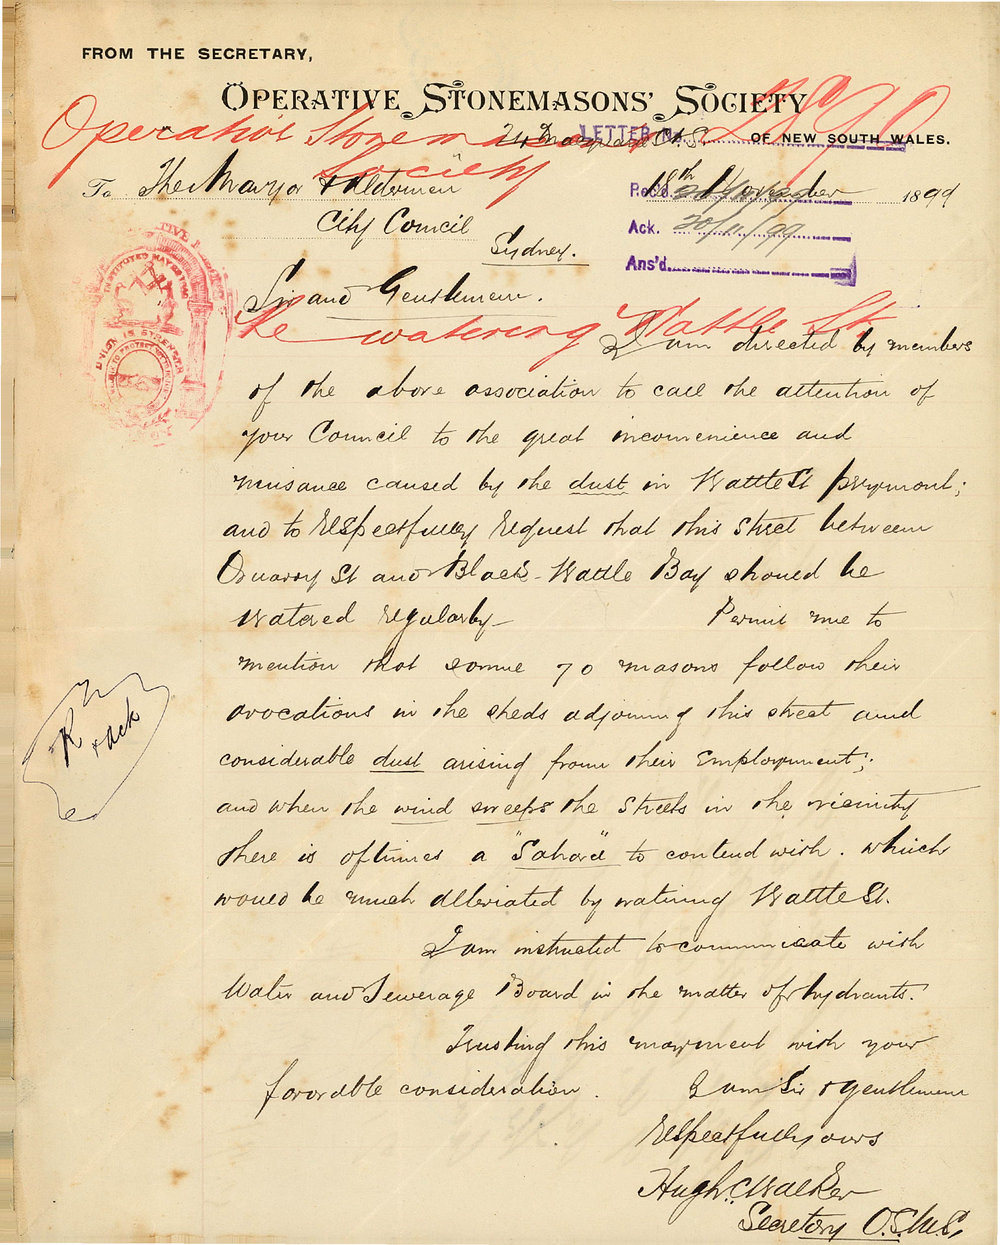 FROM THE SECRETARY,
OPERATIVE STONEMASONS' SOCIETY
OF NEW SOUTH WALES.
Operative Stonemasons
Society
LETTER
To The Mayor & Aldermen
November 1899
City Council
Sydney.
Rec'd
Ack. 20/11/99
Ans'd
INSTITUTED MAY
UNION IS STRENGTH
Sir and Gentlemen.
Re watering Wattle St
I am directed by members
of the above association to call the attention of
your Council to the great inconvenience and
nuisance caused by the dust in Wattle St Pyrmont;
and to respectfully request that this street between
Quarry St and Black-Wattle Bay should be
watered regularly— Permit me to
mention that some 70 masons follow their
avocations in the sheds adjoining this street and
considerable dust arising from their employment;
and when the wind sweeps the streets in the vicinity
there is oftimes a "Sahara" to contend with. which
would be much alleviated by watering Wattle St.
I am instructed to communicate with
Water and Sewerage Board in the matter of hydrants.
Trusting this may meet with your
favorable consideration. I am Sir & Gentlemen
Respectfully yours
Hugh C Walker
Secretary O.S.M.S.
R
& ack